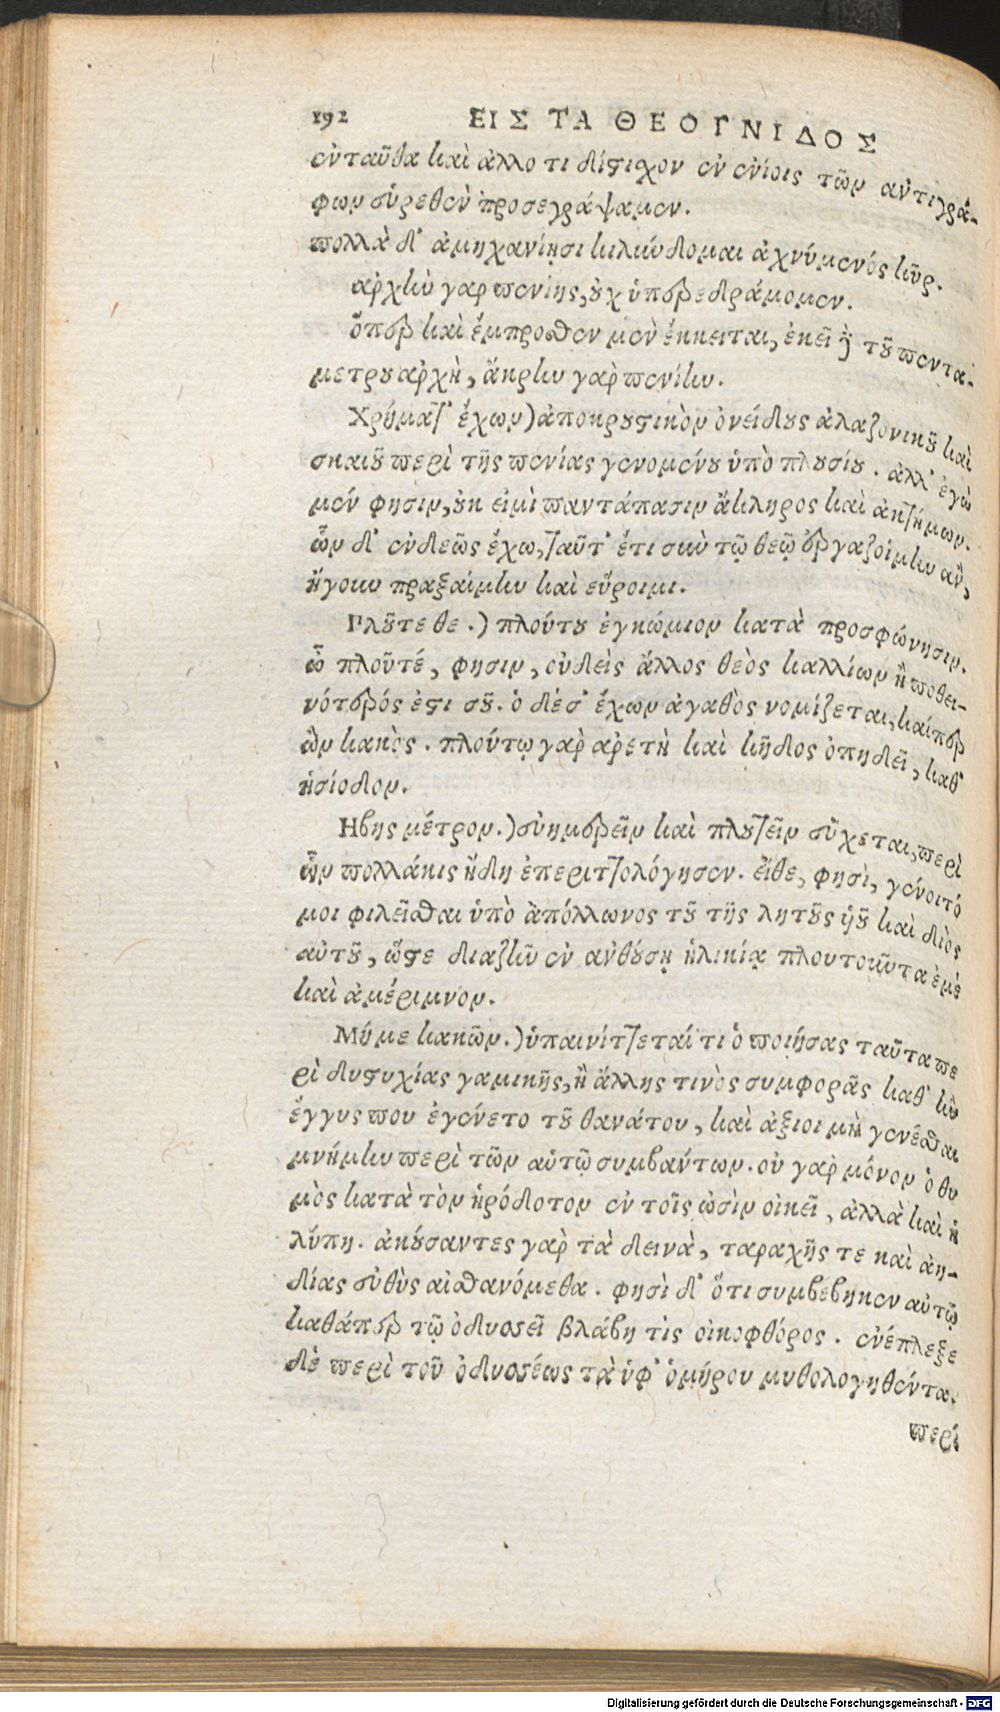 192 ΕΙΣ ΤΑ ΘΕΟΓΝΙΔΟΣ
ἐνταῦθα καὶ ἄλλο τι δίστιχον ἐν ἐνίοις τῶν ἀντιγρά-
φων εὑρεθὲν προσεγράψαμεν.
πολλὰ δ᾽ ἀμηχανίῃσι κυλίνδομαι ἀχνύμενός κῆρ.
ἀρχὴν γαρ πενίης, οὐχ ὑπερεδράμομεν.
ὅπερ καὶ ἔμπροσθεν μὲν ἔκκειται, ἐκεῖ δὲ τοῦ πεντα-
μετρου ἀρχὴ, ἄκρην γαρ πενίην.
Χρήματ᾽ ἔχων) ἀποκρουστικὸν ὀνείδους ἀλαζονικοῦ καὶ
σκαιοῦ περὶ τῆς πενίας γενομένου ὑπὸ πλουσίου. ἀλλ᾽ ἐγὼ
μέν φησιν, οὐκ εἰμὶ παντάπασιν ἄκληρος καὶ ἀκτήμων.
ὧν δ᾽ ἐνδεῶς ἔχω, ταῦτ᾽ ἔτι σὺν τῷ θεῷ ἐργαζοίμην ἂν,
ἤγουν πραξαίμην καὶ εὕροιμι.
Πλοῦτε θε.) πλούτου ἐγκώμιον κατὰ προσφώνησιν.
ὦ πλοῦτέ, φησιν, οὐδεὶς ἄλλος θεὸς καλλίων ἢ ποθει-
νότερός ἐστι σοῦ. ὁ δέ σ᾽ ἔχων ἀγαθὸς νομίζεται, καίπερ
ὢν κακὸς. πλούτῳ γαρ αρετὴ καὶ κῦδος ὀπηδεῖ, καθ᾽
ἡσίοδον.
Ηβης μέτρον.) εὐημερεῖν καὶ πλουτεῖν εὔχεται, περὶ
ὧν πολλάκις ἤδη ἐπεριττολόγησεν. εἴθε, φησὶ, γένοιτό
μοι φιλεῖσθαι ὑπὸ ἀπόλλωνος τοῦ τῆς λητοῦς υἱοῦ καὶ διὸς
αὐτοῦ, ὥστε διαζῆν ἐν ανθούσῃ ἡλικίᾳ πλουτοῦντα ἐμὲ
καὶ ἀμέριμνον.
Μή με κακῶν.) ὑπαινίττεταί τι ὁ ποιήσας ταῦτα πε
ρὶ δυστυχίας γαμικῆς, ἢ ἄλλης τινὸς συμφορᾶς καθ᾽ ἣν
ἔγγυς που ἐγένετο τοῦ θανάτου, καὶ ἀξιοι μὴ γενέσθαι
μνήμην περὶ τῶν αὐτῷ συμβαντων. οὐ γαρ μόνον ὁ θυ
μὸς κατὰ τὸν ἡρόδοτον ἐν τοῖς ὠσὶν οἰκεῖ, ἀλλὰ καὶ ἡ
λύπη. ἀκούσαντες γαρ τὰ δεινὰ, ταραχῆς τε καὶ ἀη-
δίας εὐθὺς αἰσθανόμεθα. φησὶ δ᾽ ὅτι συμβέβηκεν αὐτῷ
καθάπερ τῷ ὀδυσσεῖ βλάβη τὶς οἰκοφθόρος. ἐνέπλεξε
δὲ περὶ τοῦ ὀδυσσέως τὰ ὑφ᾽ ὁμήρου μυθολογηθέντα.
περὶ
Digitalisierung gefördert durch die Deutsche Forschungsgemeinschaft - DFG